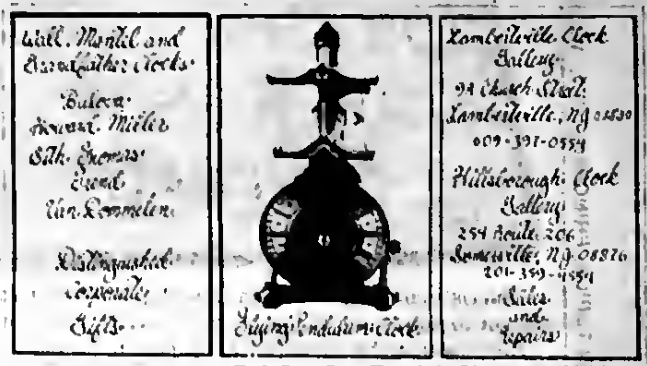 Wall, Mantel and
Grandfather Clocks
Bulova
Howard Miller
Seth Thomas
Trend
Van Dommelen
Distinguished
Corporate
Gifts
Flying Pendulum Clock
Lambertville Clock
Gallery
Church Street
Lambertville, NJ
609-397-0554
Hillsborough Clock
Gallery
254 Route 206
Somerville, NJ 08876
201-359-
Sales
and
Repairs